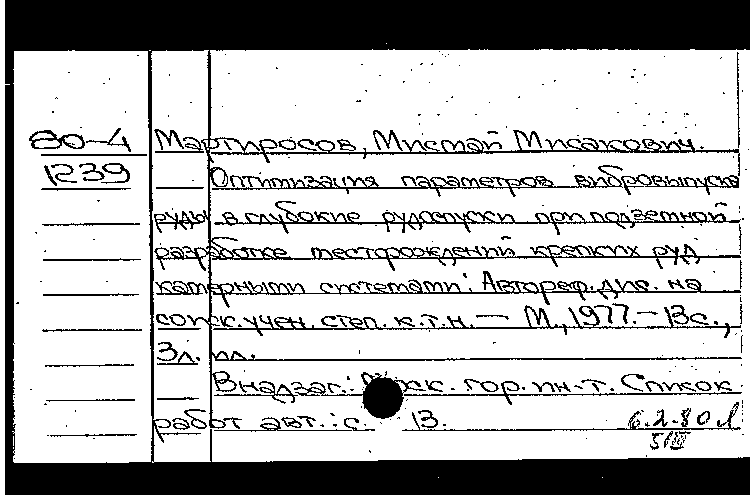 80-4 Мартиросов, Мисмай Мисакович.
1239 Оптимизация параметров вибровыпуска
руды в глубокие рудоспуски при подземной
разработке месторождений крепких руд
камерными системами: Автореф. дис. на
соиск. учен. степ. к.т.н. — М., 1977. — 13с.,
3л. ил.
В надзаг.: Моск. гор. ин-т. Список
работ авт.: с. 13. 6.2.80